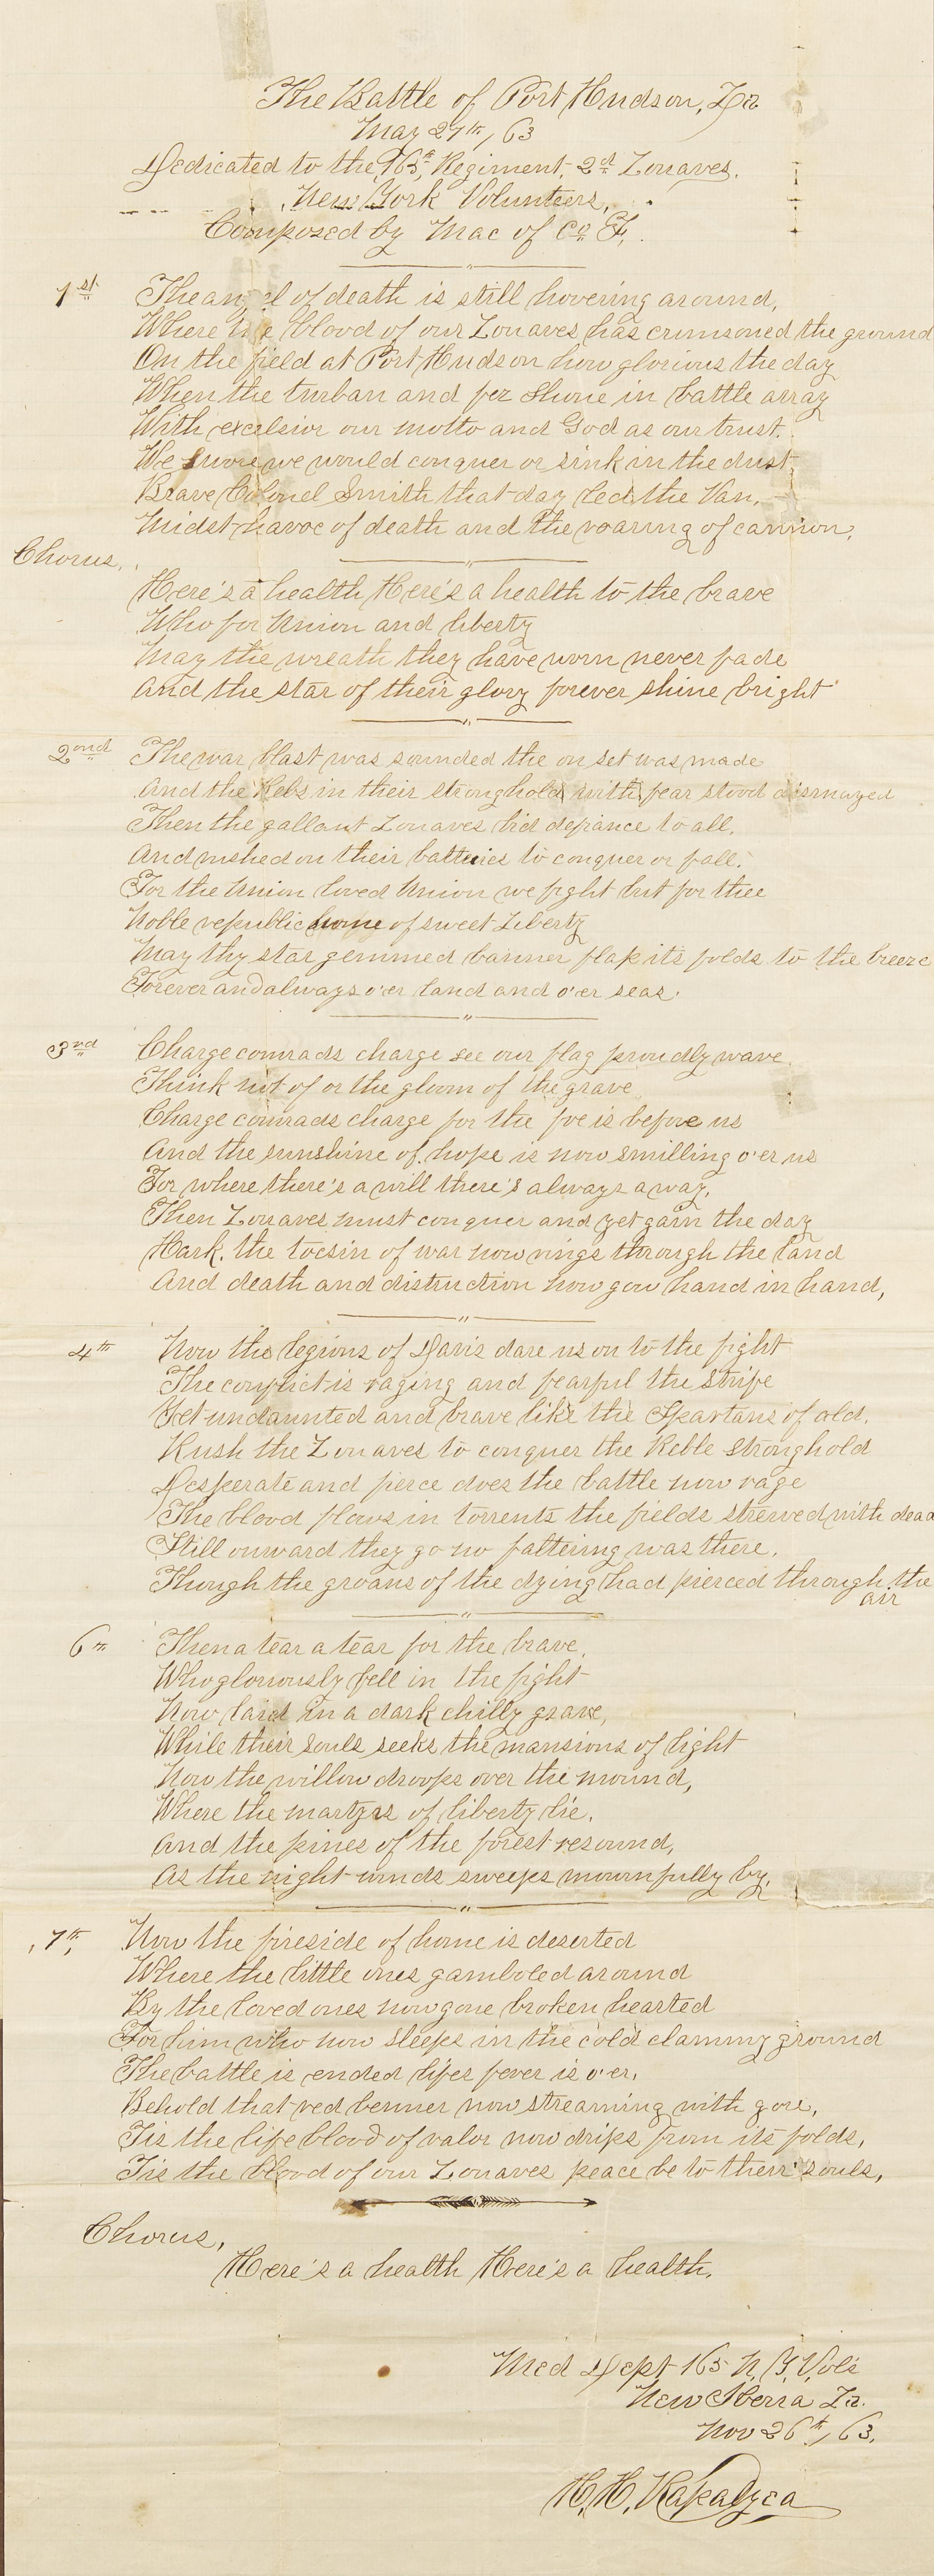 The Battle of Port Hudson, La
May 27th, /63
Dedicated to the 165th Regiment, 2nd Zouaves.
New York Volunteers,
Composed by Mac of Co. F.
1st The angel of death is still hovering around,
Where the blood of our Zouaves has crimsoned the ground
On the field at Port Hudson how glorious the day
When the turban and fez shone in battle array
With excelsior our motto and God as our trust.
We swore we would conquer or sink in the dust.
Brave Colonel Smith that day led the Van.
Midst havoc of death and the roaring of cannon,
Chorus,
Here's a health Here's a health to the brave
Who for Union and liberty
May the wreath they have worn never fade
And the star of their glory forever shine bright
2ond The war blast was sounded the on set was made
And the Rebs in their stronghold with fear stood dismayed
Then the gallant Zouaves bid defiance to all,
And rushed on their batteries to conquer or fall.
For the Union loved Union we fight but for thee
Noble republic home of sweet Liberty
May thy star gemmed banner flap its folds to the breeze
Forever and always o'er land and o'er seas.
3nd Charge comrads charge see our flag proudly wave
Think not of or the gloom of the grave
Charge comrads charge for the foe is before us
And the sunshine of hope is now smilling o'er us
For where there's a will there's always a way,
Then Zouaves must conquer and yet gain the day
Hark. the tocsin of war now rings through the land
And death and distruction now gow hand in hand,
4th Now the legions of Davis dare us on to the fight
The conflict is raging and fearful the strife
Yet undaunted and brave like the Spartans of old,
Rush the Zouaves to conquer the Reble stronghold
Desperate and fierce does the battle now rage
The blood flows in torrents the fields strewed with dead
Still onward they go no faltering was there,
Though the groans of the dying had pierced through the
air
6th Then a tear a tear for the brave,
Who gloriously fell in the fight
Now laid in a dark chilly grave,
While their souls seeks the mansions of light
Now the willow droops over the mound,
Where the martyrs of liberty lie.
And the pines of the forest resound,
As the night winds sweeps mournfully by.
7th, Now the fireside of home is deserted
Where the little ones gamboled around
By the loved ones now gone broken hearted
For him who now sleeps in the cold clammy ground
The battle is ended lifes fever is o'er,
Behold that red benner now streaming with gore,
Tis the life blood of valor now drips from its folds,
Tis the blood of our Zouaves peace be to their souls,
Chorus,
Here's a health Here's a health.
Med Dept 165 N. Y. Vols
New Iberia La.
Nov 26th, /63,
H. H.